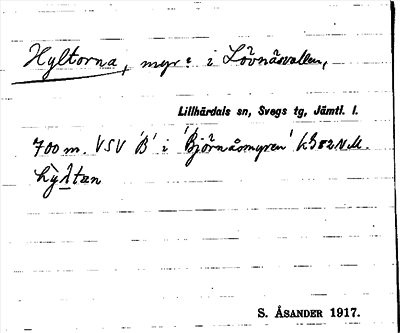 Hyltorna, myr: i Lövnäsvallen,
Lillhärdals sn, Svegs tg, Jämtl. l.
700 m. VSV 'B' i 'Björnåsmyren'
hỳltan
S. ÅSANDER 1917.